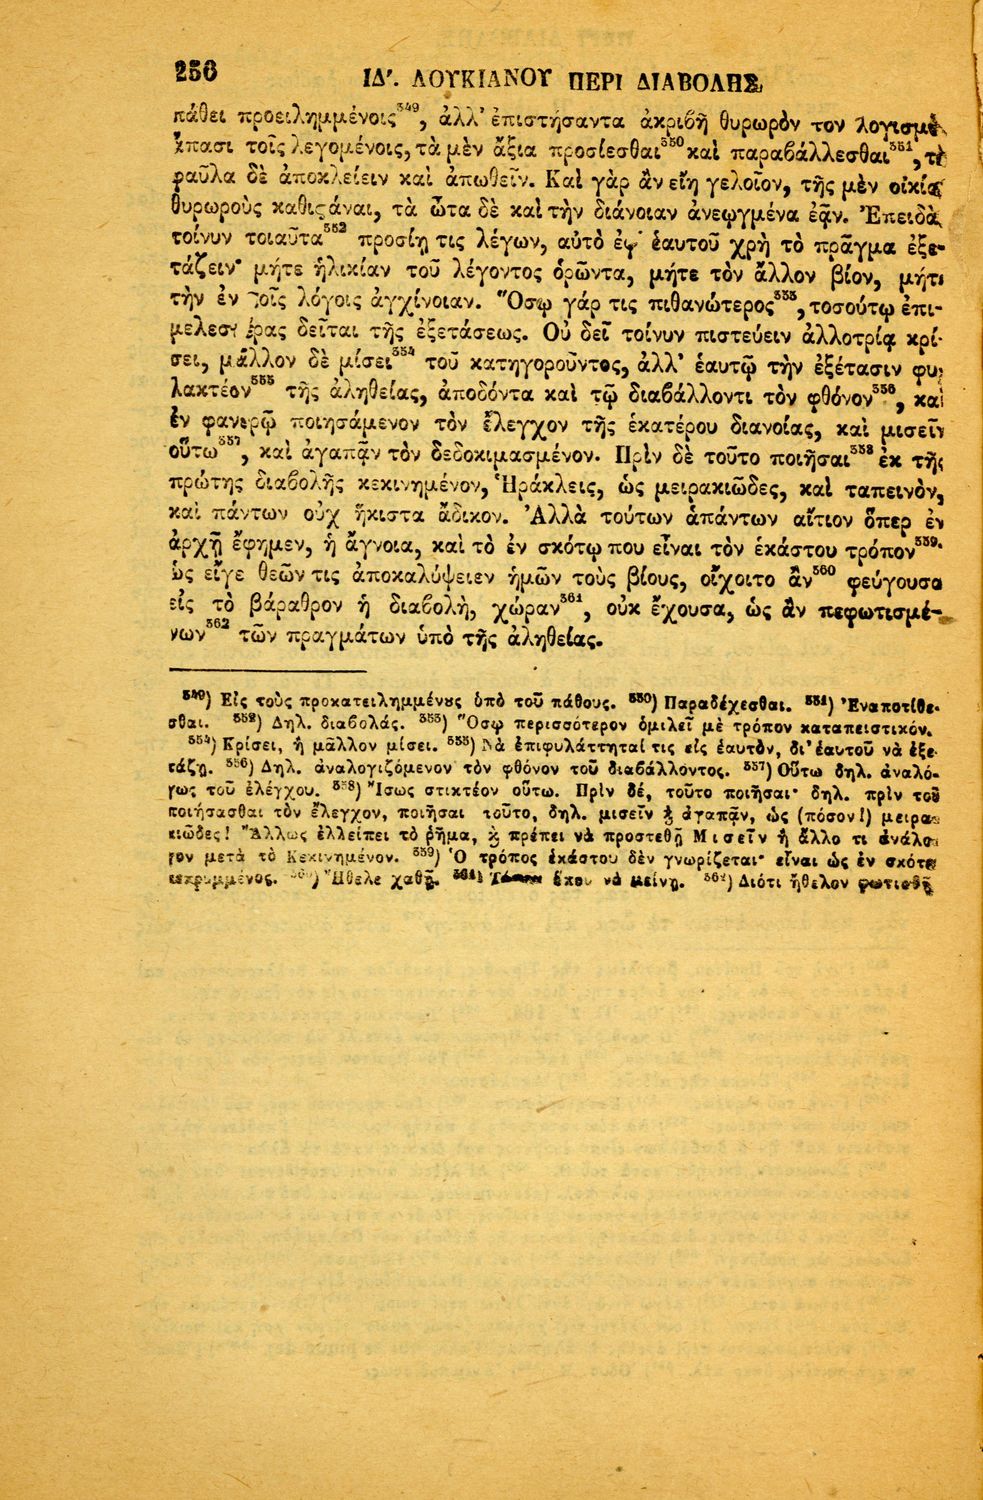 256
ΙΔ'. ΛΟΥΚΙΑΝΟΥ ΠΕΡΙ ΔΙΑΒΟΛΗΣ
πάθει προειλημμένοις⁵⁴⁹, ἀλλ' ἐπιστήσαντα ἀκριβῆ θυρωρὸν τον λογισμὸ
ἅπασι τοῖς λεγομένοις, τὰ μὲν ἄξια προσίεσθαι⁵⁵⁰ καὶ παραβάλλεσθαι⁵⁵¹, τὰ
φαῦλα δὲ ἀποκλείειν καὶ ἀπωθεῖν. Καὶ γὰρ ἂν εἴη γελοῖον, τῆς μὲν οἰκίας
θυρωροὺς καθιστάναι, τὰ ὦτα δὲ καὶ τὴν διάνοιαν ἀνεῳγμένα ἐᾷν. Ἐπειδὰ
τοίνυν τοιαῦτα⁵⁵² προσίῃ τις λέγων, αὐτὸ ἐφ' ἑαυτοῦ χρὴ τὸ πρᾶγμα ἐξε-
τάζειν· μήτε ἡλικίαν τοῦ λέγοντος ὁρῶντα, μήτε τὸν ἄλλον βίον, μήτε
τὴν ἐν τοῖς λόγοις ἀγχίνοιαν. Ὅσῳ γάρ τις πιθανώτερος⁵⁵³, τοσούτῳ ἐπι-
μελεστέρας δεῖται τῆς ἐξετάσεως. Οὐ δεῖ τοίνυν πιστεύειν ἀλλοτρίᾳ κρί-
σει, μᾶλλον δὲ μίσει⁵⁵⁴ τοῦ κατηγοροῦντος, ἀλλ' ἑαυτῷ τὴν ἐξέτασιν φυ-
λακτέον⁵⁵⁵ τῆς ἀληθείας, ἀποδόντα καὶ τῷ διαβάλλοντι τὸν φθόνον⁵⁵⁶, καὶ
ἐν φανερῷ ποιησάμενον τὸν ἔλεγχον τῆς ἑκατέρου διανοίας, καὶ μισεῖν
οὕτω⁵⁵⁷, καὶ ἀγαπᾷν τὸν δεδοκιμασμένον. Πρὶν δὲ τοῦτο ποιῆσαι⁵⁵⁸ ἐκ τῆς
πρώτης διαβολῆς κεκινημένον, Ἡράκλεις, ὡς μειρακιῶδες, καὶ ταπεινὸν,
καὶ πάντων οὐχ ἥκιστα ἄδικον. Ἀλλὰ τούτων ἁπάντων αἴτιον ὅπερ ἐν
ἀρχῇ ἔφημεν, ἡ ἄγνοια, καὶ τὸ ἐν σκότῳ που εἶναι τὸν ἑκάστου τρόπον⁵⁵⁹.
ὡς εἴγε θεῶν τις ἀποκαλύψειεν ἡμῶν τοὺς βίους, οἴχοιτο ἂν⁵⁶⁰ φεύγουσα
εἰς τὸ βάραθρον ἡ διαβολὴ, χώραν⁵⁶¹, οὐκ ἔχουσα, ὡς ἂν πεφωτισμέ-
νων⁵⁶² τῶν πραγμάτων ὑπὸ τῆς ἀληθείας.
⁵⁴⁹) Εἰς τοὺς προκατειλημμένους ὑπὸ τοῦ πάθους. ⁵⁵⁰) Παραδέχεσθαι. ⁵⁵¹) Ἐναποτίθε-
σθαι. ⁵⁵²) Δηλ. διαβολάς. ⁵⁵³) Ὅσῳ περισσότερον ὁμιλεῖ μὲ τρόπον καταπειστικόν.
⁵⁵⁴) Κρίσει, ἢ μᾶλλον μίσει. ⁵⁵⁵) Νὰ ἐπιφυλάττηταί τις εἰς ἑαυτὸν, δι' ἑαυτοῦ νὰ ἐξε-
τάζῃ. ⁵⁵⁶) Δηλ. ἀναλογιζόμενον τὸν φθόνον τοῦ διαβάλλοντος. ⁵⁵⁷) Οὕτω δηλ. ἀναλό-
γως τοῦ ἐλέγχου. ⁵⁵⁸) Ἴσως στικτέον οὕτω. Πρὶν δέ, τοῦτο ποιῆσαι· δηλ. πρὶν τοῦ
ποιήσασθαι τὸν ἔλεγχον, ποιῆσαι τοῦτο, δηλ. μισεῖν ἢ ἀγαπᾷν, ὡς (πόσον!) μειρα-
κιῶδες! Ἄλλως ἐλλείπει τὸ ῥῆμα, καὶ πρέπει νὰ προστεθῇ Μισεῖν ἢ ἄλλο τι ἀνάλο-
γον μετὰ τὸ Κεκινημένον. ⁵⁵⁹) Ὁ τρόπος ἑκάστου δὲν γνωρίζεται· εἶναι ὡς ἐν σκότει
κεκρυμμένος. ⁵⁶⁰) Ἤθελε χαθῇ. ⁵⁶¹) Τόπον ὅπου νὰ μείνῃ. ⁵⁶²) Διότι ἤθελον φωτισθῇ